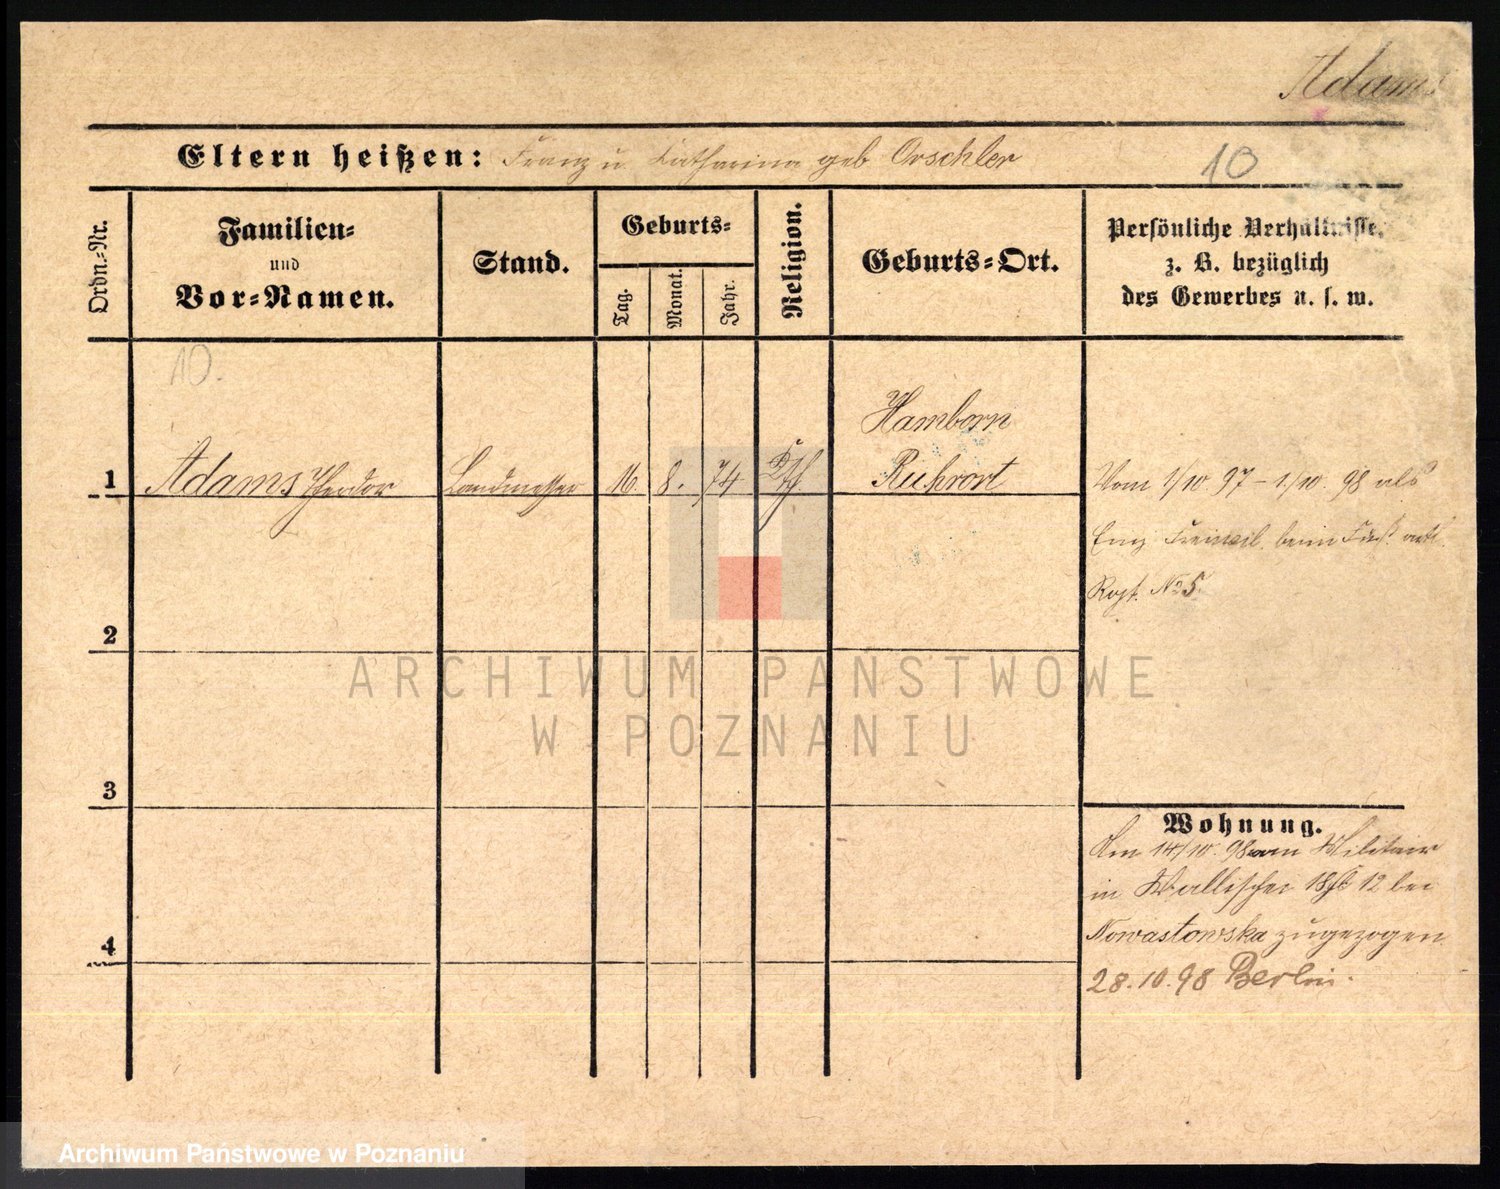 Adams
Eltern heißen: Franz u. Katharina geb Orschler
10
Ordn.-Nr.
Familien-
und
Vor-Namen.
Stand.
Geburts-
Tag.
Monat.
Jahr.
Religion.
Geburts-Ort.
Persönliche Verhältnisse,
z. B. bezüglich
des Gewerbes u. s. w.
10.
1
Adams Theodor
Landmesser
16.
8.
74
Kth.
Hamborn
Ruhrort
Vom 1/10. 97 – 1/10. 98 als
Einj. Freiwil. beim Fuß. artl.
Regt. No 5.
2
3
4
Wohnung.
Am 14/10. 98 vom Militair
in Wallischei 12 bei
Nowastowska zugezogen
28.10.98 Berlin.
ARCHIWUM PAŃSTWOWE
W POZNANIU
Archiwum Państwowe w Poznaniu